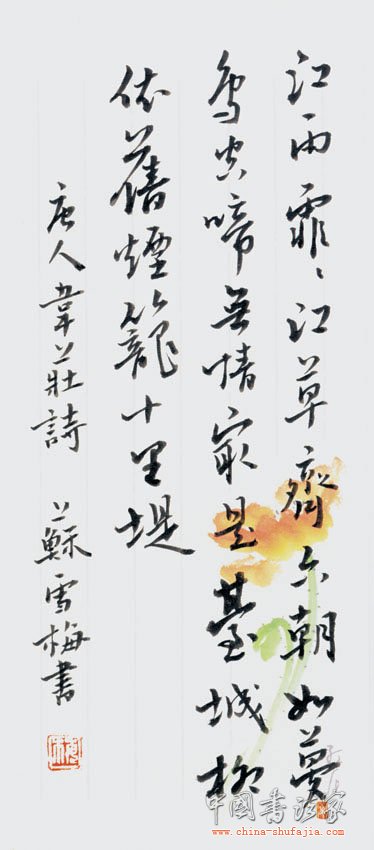 江雨霏〻江草齊六朝如夢
鸟空啼無情最是臺城柳
依舊煙籠十里堤
唐人韋莊詩 蘇雪梅書
中国书法家
www.china-shufajia.com